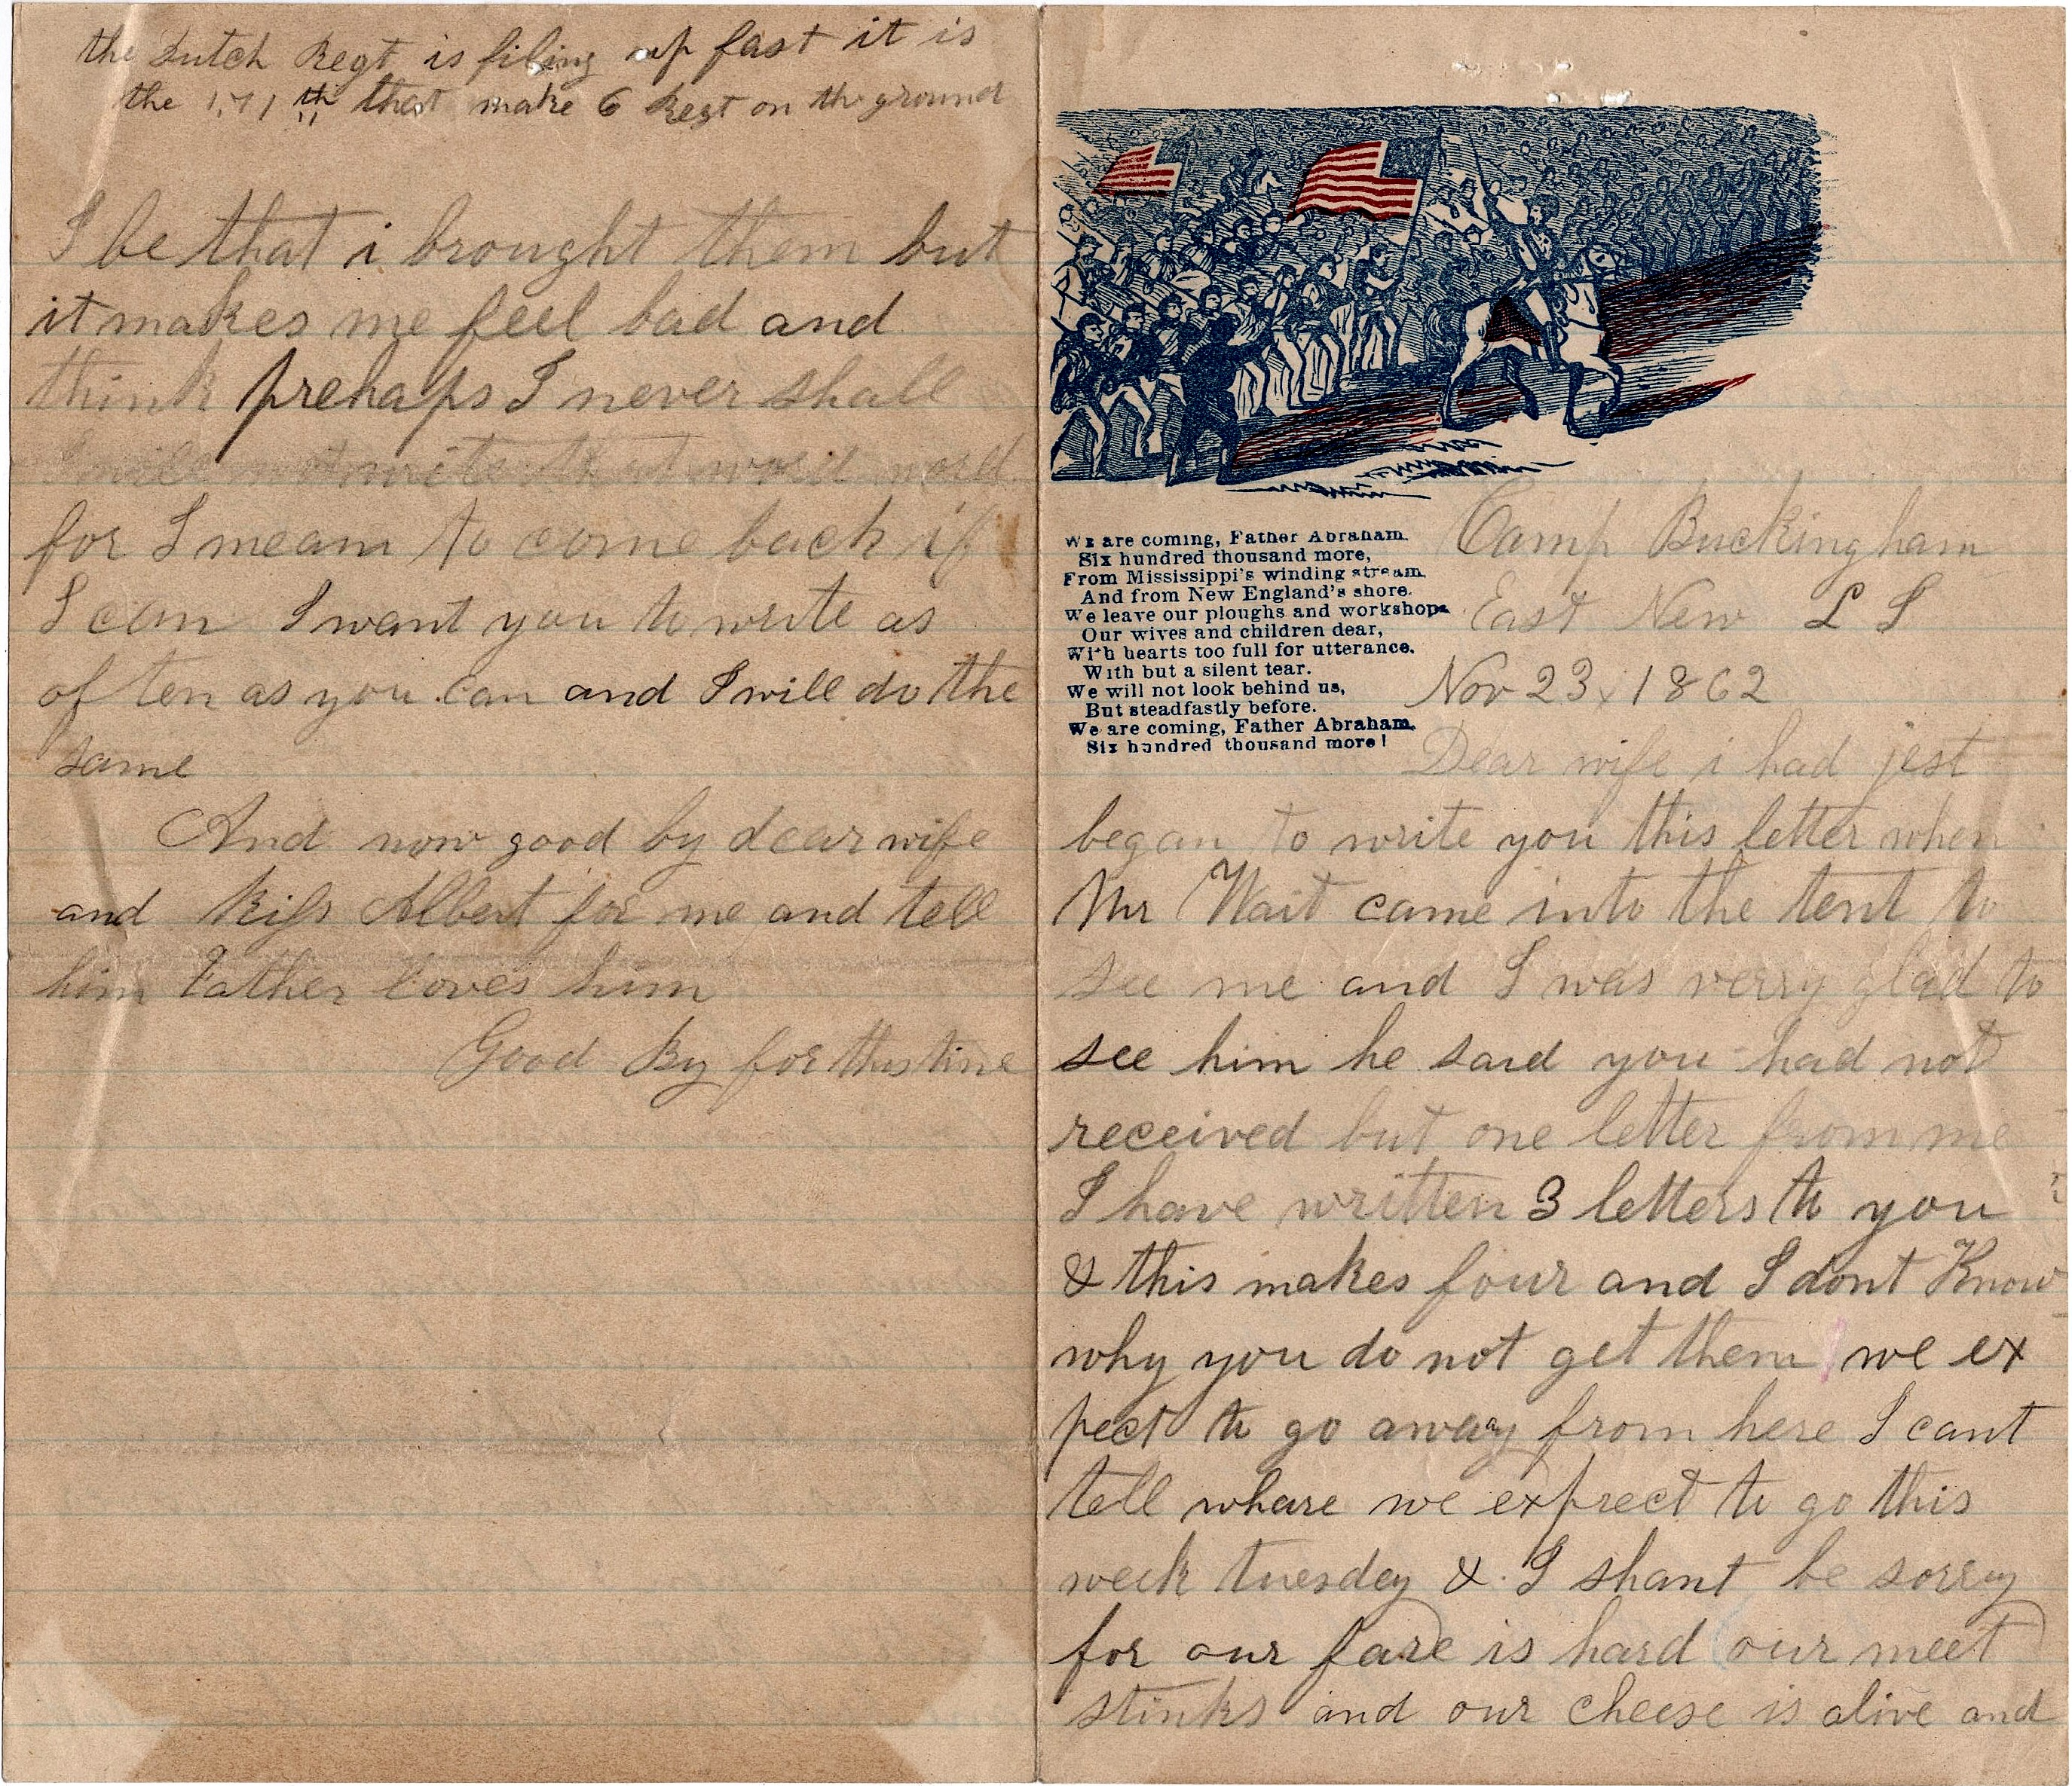 the Dutch Regt is filing up fast it is
the 171th that make 6 Regt on the ground
I be that i brought them but
it makes me feel bad and
think prehaps I never shall
I will not write that word word
for I mean to come back if
I can I want you to write as
often as you can and I will do the
same
And now good by dear wife
and kiss Albert for me and tell
him Father loves him
Good By for this time
We are coming, Father Abraham.
Six hundred thousand more,
From Mississippi's winding stream.
And from New England's shore.
We leave our ploughs and workshops
Our wives and children dear,
With hearts too full for utterance.
With but a silent tear.
We will not look behind us,
But steadfastly before.
We are coming, Father Abraham.
Six hundred thousand more!
Camp Buckingham
East New L I
Nov 23, 1862
Dear wife i had jest
began to write you this letter when
Mr Wait came into the tent to
see me and I was verry glad to
see him he said you had not
received but one letter from me
I have written 3 letters to you
& this makes four and I dont Know
why you do not get them we ex
pect to go away from here I cant
tell whare we exprect to go this
week tuesdey & I shant be sorry
for our fare is hard our meet
stinks and our cheese is alive and